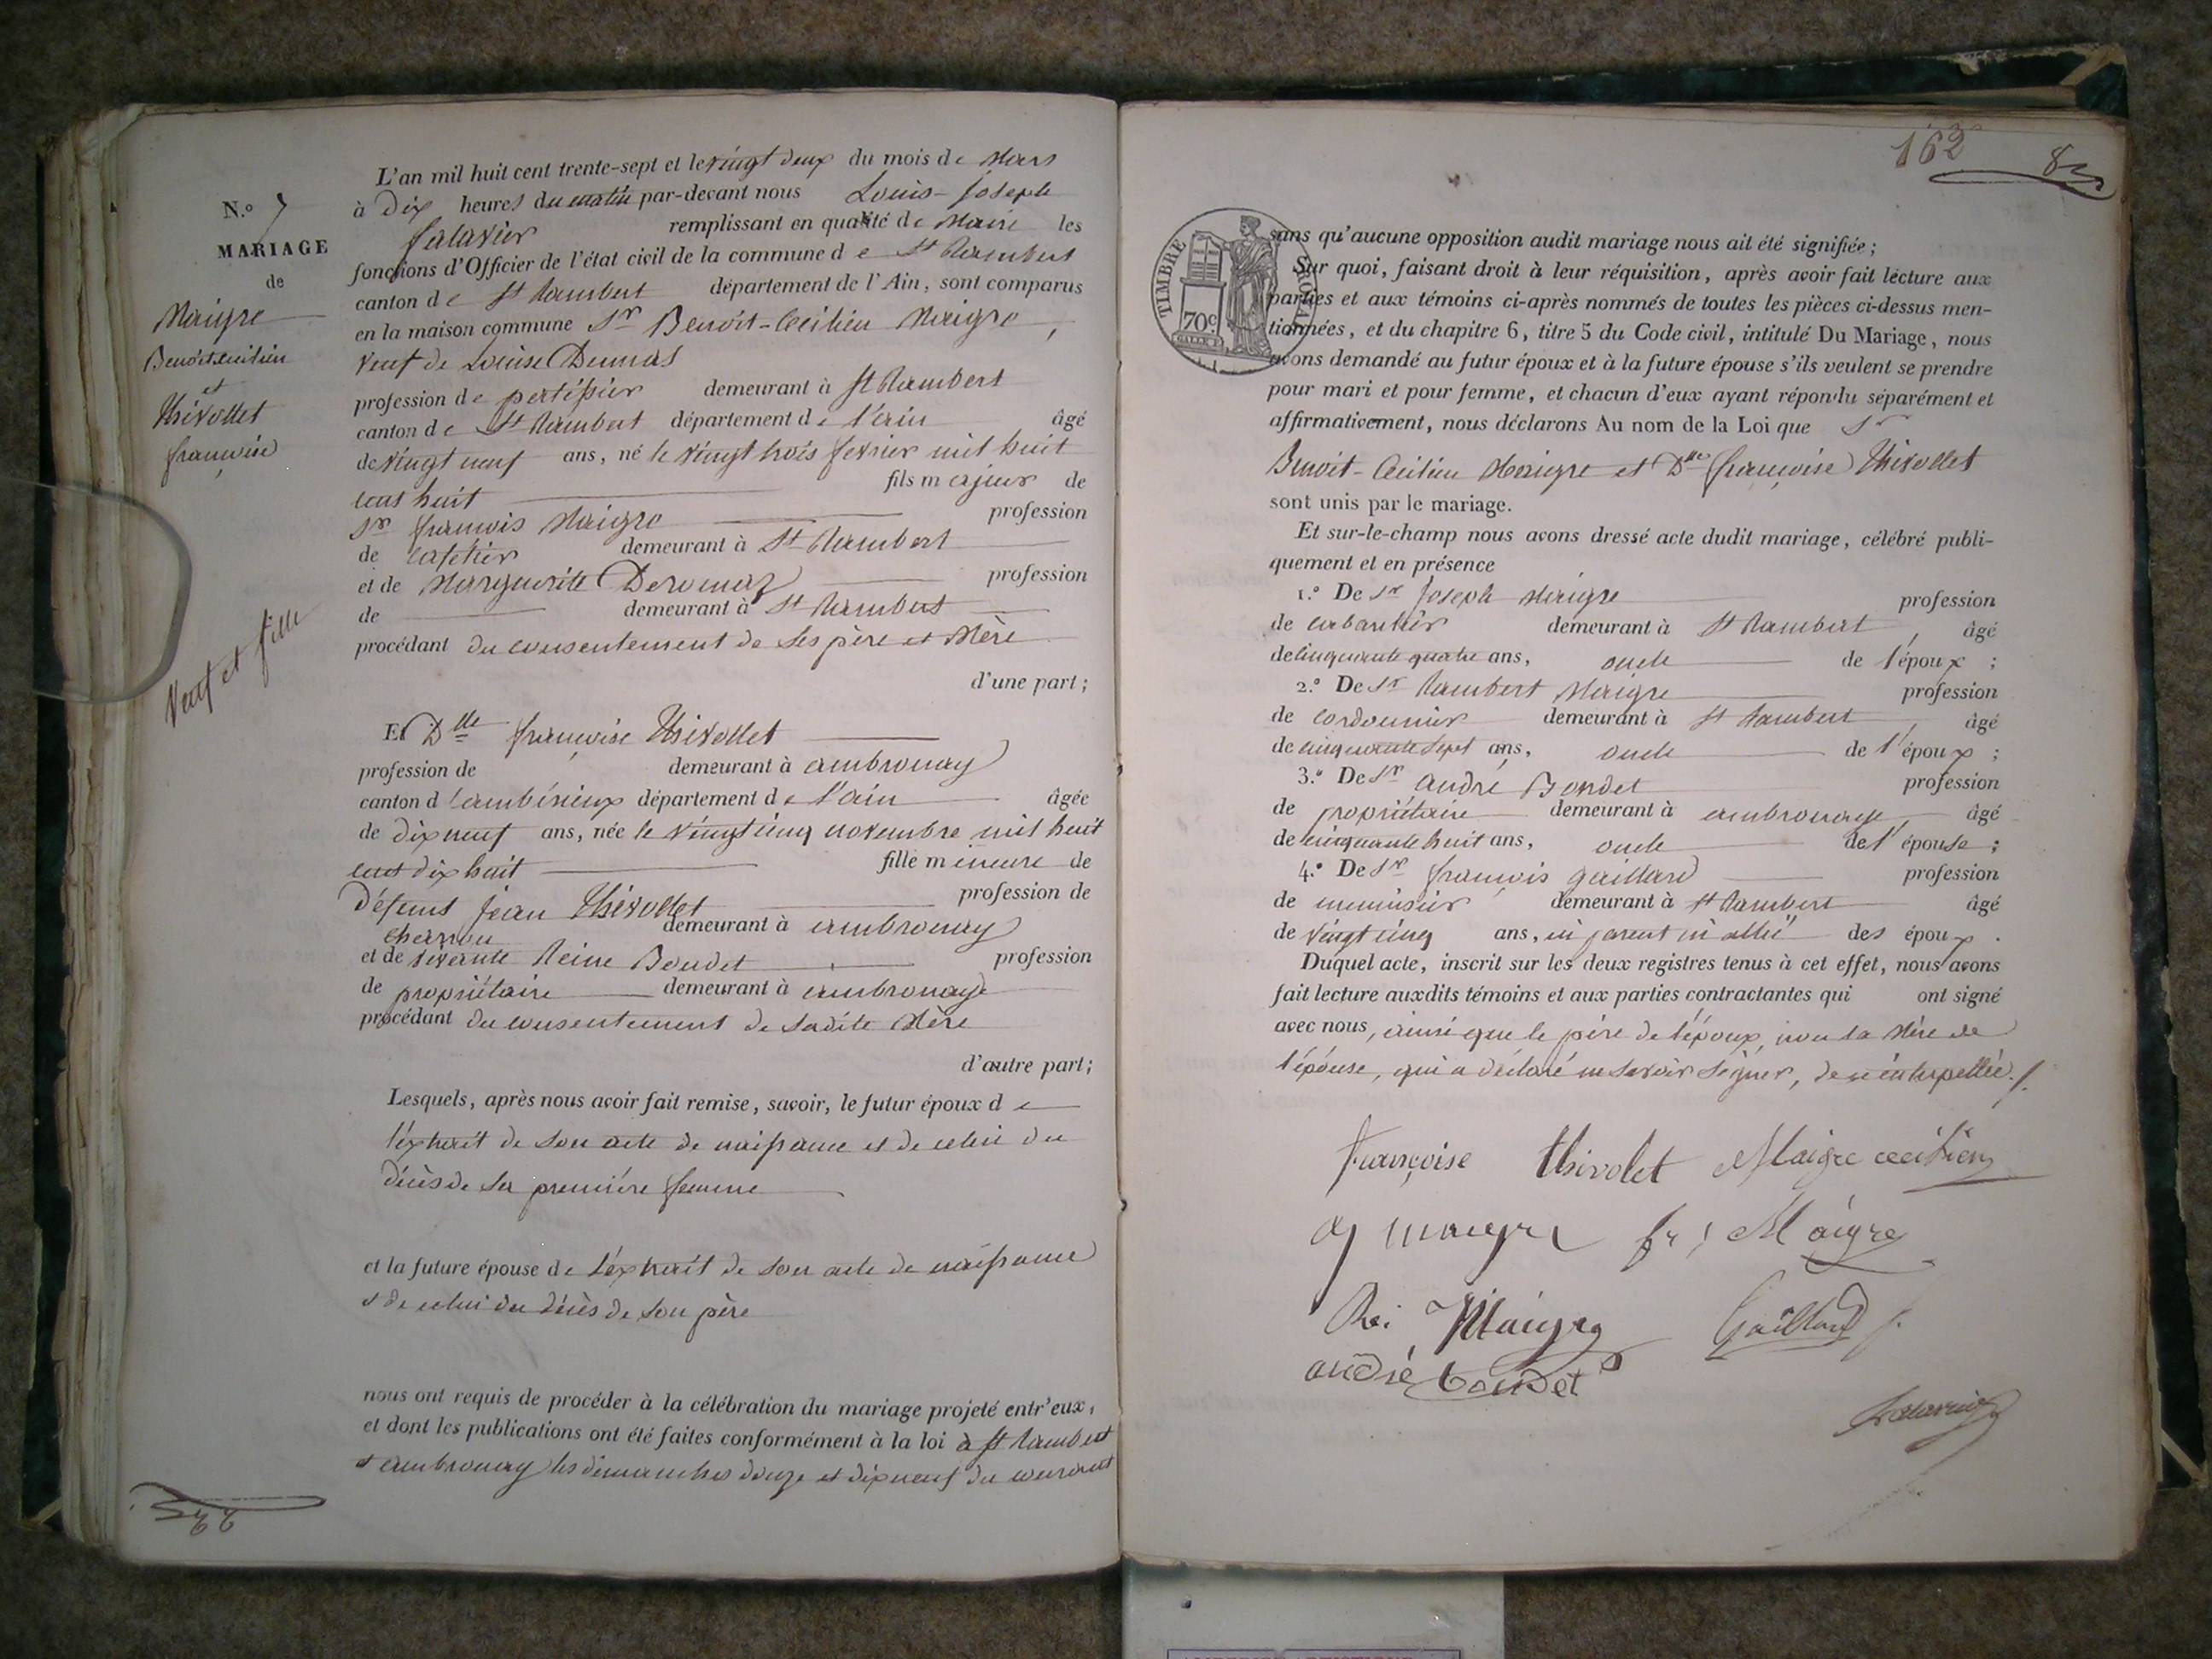 N.o 7
MARIAGE
de
Maigre
Benoit Cecilien
et
Thivollet
françoise
Veuf et fille
L'an mil huit cent trente-sept et le vingt deux du mois de Mars
à Dix heures du matin par-devant nous Louis-Joseph
falavier remplissant en qualité de Maire les
fonctions d'Officier de l'état civil de la commune de St Rambert
canton de St Rambert département de l'Ain, sont comparus
en la maison commune Sr Benoit-Cecilien Maigre,
Veuf de Louise Dumas
profession de demeurant à St Rambert
canton de St Rambert département de l'ain âgé
de vingt neuf ans, né le vingt trois fevrier mil huit
cent huit fils majeur de
Sr françois Maigre profession
de Cafetier demeurant à St Rambert
et de Marguerite Deromaz profession
de demeurant à St Rambert
procédant du consentement de ses père et Mère
d'une part;
Et Dlle françoise Thivollet
profession de demeurant à ambronay
canton d'ambérieux département de l'ain âgée
de dix neuf ans, née le vingt cinq novembre mil huit
cent dix huit fille mineure de
Défunt Jean Thivollet profession de
charron demeurant à ambronay
et de vivante Reine Boudet profession
de propriétaire demeurant à ambronay
procédant du consentement de sadite Mère
d'autre part;
Lesquels, après nous avoir fait remise, savoir, le futur époux de
l'éxtrait de son acte de naissance et de celui du
décès de sa première femme
et la future épouse de l'éxtrait de son acte de naissance
et de celui du décès de son père
nous ont requis de procéder à la célébration du mariage projeté entr'eux,
et dont les publications ont été faites conformément à la loi à St Rambert
et ambronay les dimanches douze et dix neuf du courant
162
82
TIMBRE ROYAL
70c
sans qu'aucune opposition audit mariage nous ait été signifiée;
Sur quoi, faisant droit à leur réquisition, après avoir fait lecture aux
parties et aux témoins ci-après nommés de toutes les pièces ci-dessus men-
tionnées, et du chapitre 6, titre 5 du Code civil, intitulé Du Mariage, nous
avons demandé au futur époux et à la future épouse s'ils veulent se prendre
pour mari et pour femme, et chacun d'eux ayant répondu séparément et
affirmativement, nous déclarons Au nom de la Loi que Sr
Benoit-Cecilien Maigre et Dlle françoise Thivollet
sont unis par le mariage.
Et sur-le-champ nous avons dressé acte dudit mariage, célébré publi-
quement et en présence
1.o De Sr Joseph Maigre profession
de cabaretier demeurant à St Rambert, âgé
de cinquante quatre ans, oncle de l'époux;
2.o De Sr Rambert Maigre profession
de cordonnier demeurant à St Rambert, âgé
de cinquante sept ans, oncle de l'époux;
3.o De Sr andré Boudet profession
de propriétaire demeurant à ambronay, âgé
de cinquante huit ans, oncle de l'épouse;
4.o De Sr françois gaillard profession
de menuisier demeurant à St Rambert âgé
de vingt cinq ans, ni parent ni allié des époux.
Duquel acte, inscrit sur les deux registres tenus à cet effet, nous avons
fait lecture auxdits témoins et aux parties contractantes qui ont signé
avec nous, ainsi que le père de l'époux, non la Mère de
l'épouse, qui a déclaré ne savoir signer, de ce interpellée.
françoise thivolet Maigre cecilien
maigre fr Maigre
Maigre Gaillard
andré boudet